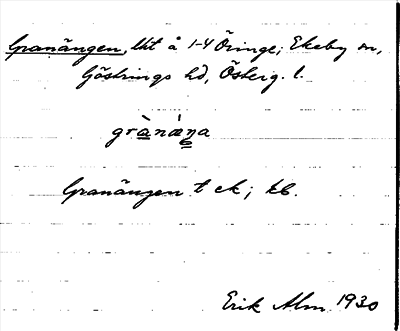 Granängen, lht å 1-4 Öringe; Ekeby sn,
Göstrings hd, Österg. l.
gràná̈ŋa
Granängen t ek; kb.
Erik Alm 1930